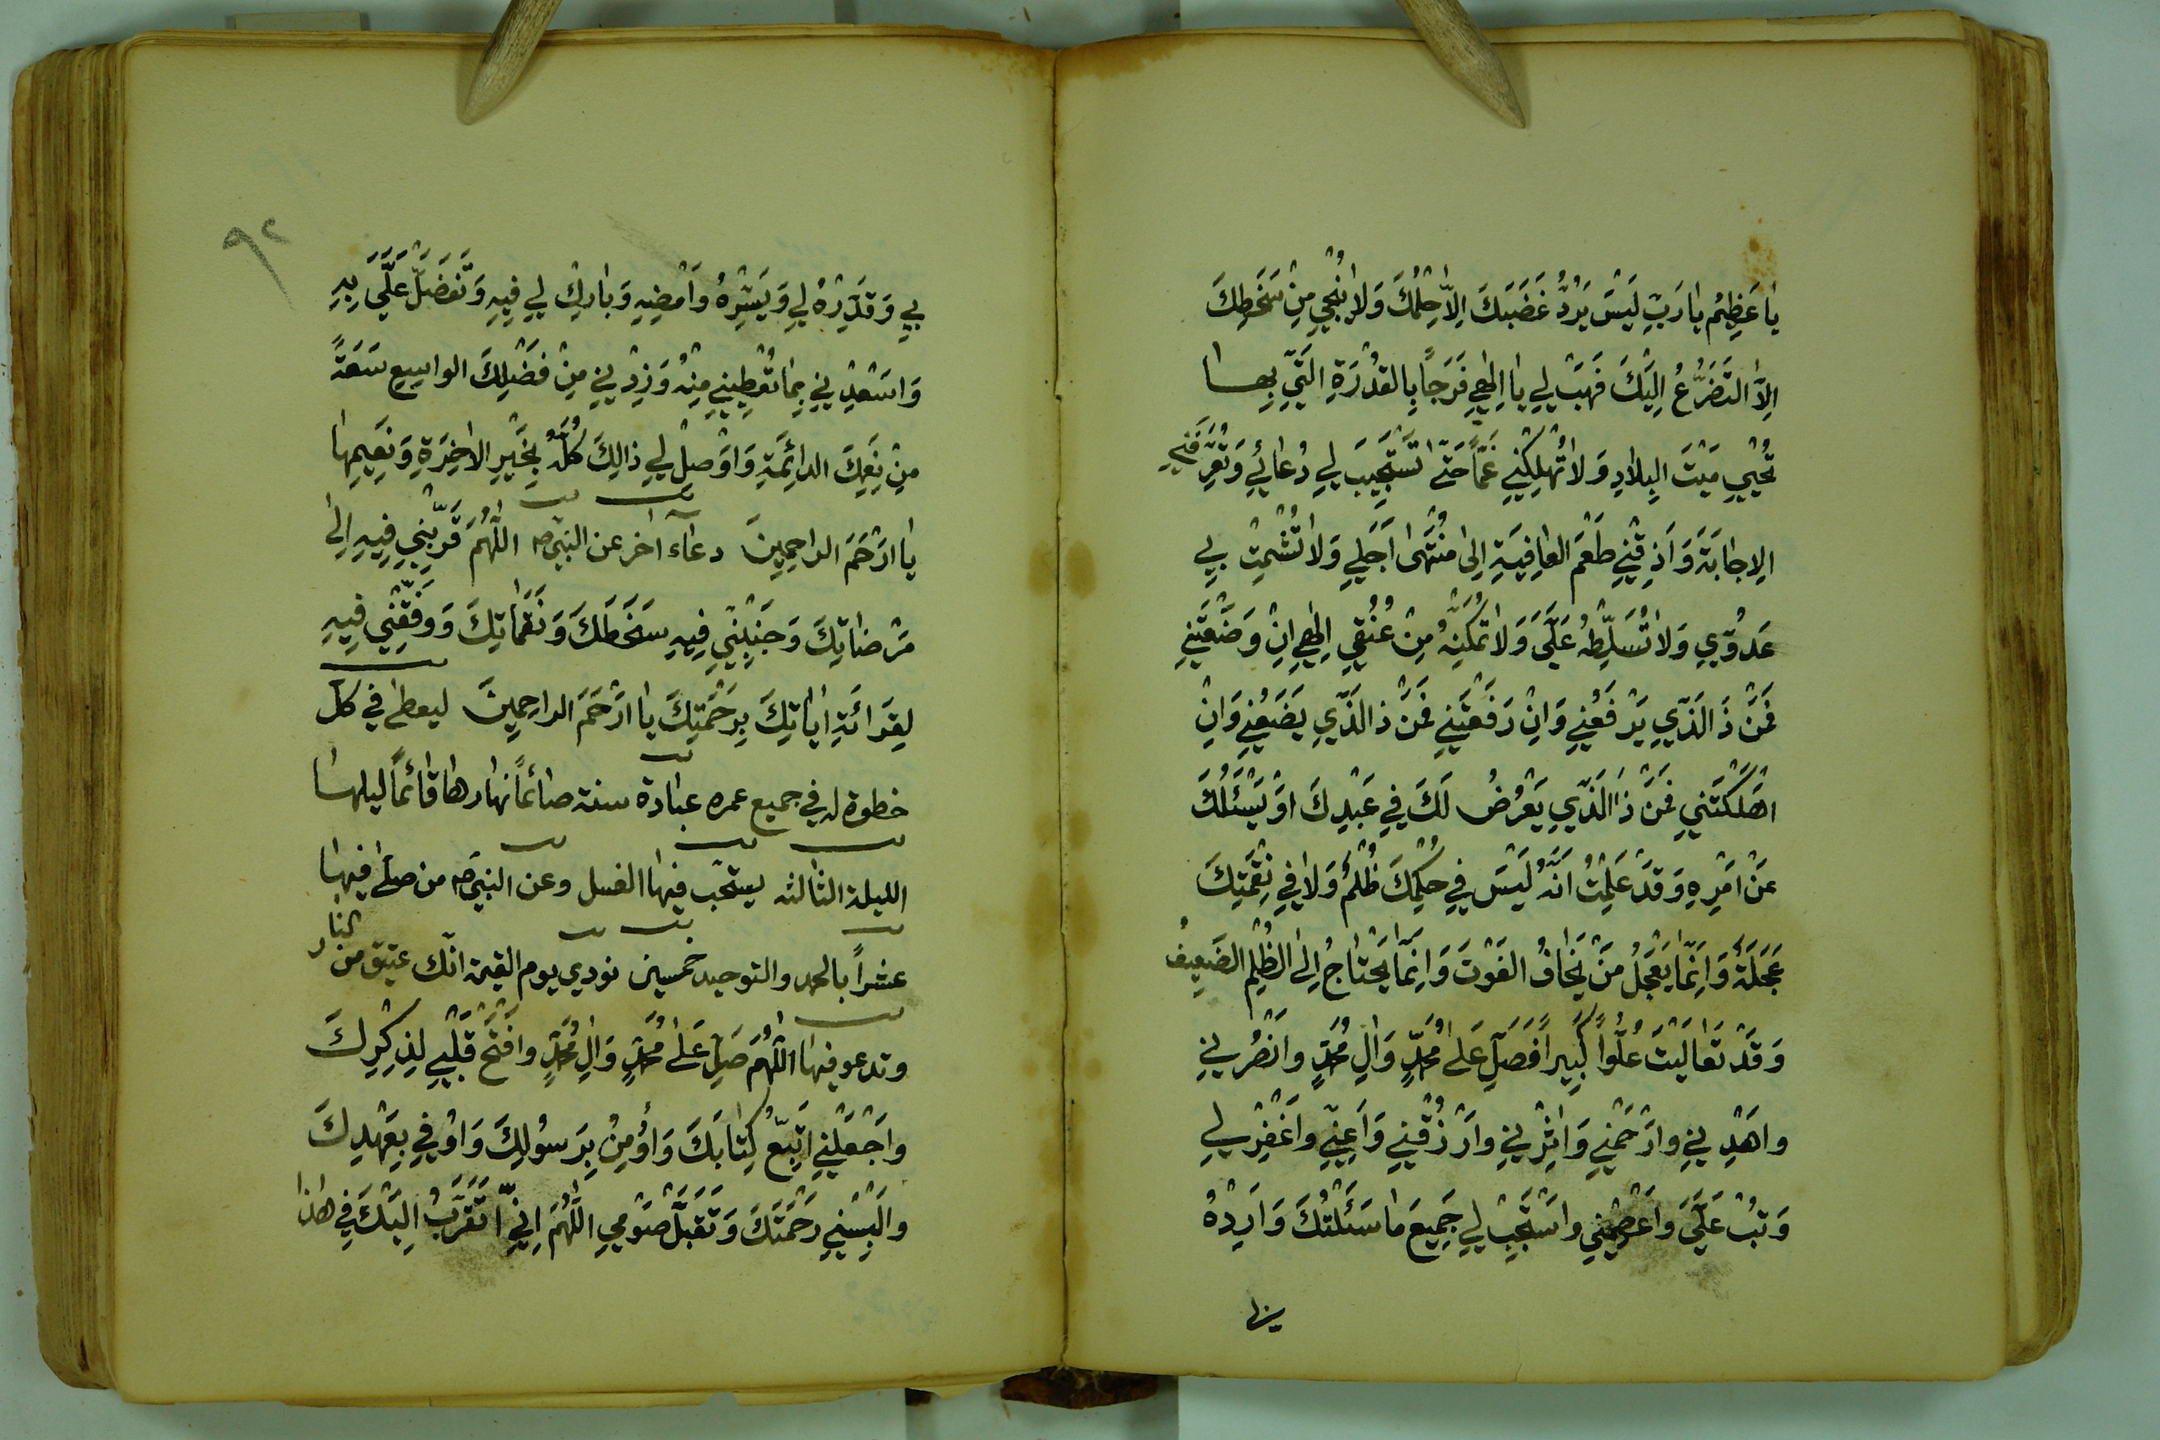 يٰا عَظيمُ يٰا رَبِّ لَيْسَ يَرُدُّ غَضَبَكَ اِلاّٰ حِلْمُكَ وَلاٰ يُنْجي مِنْ سَخَطِكَ
اِلاَّ التَّضَرُّعُ اِلَيْكَ فَهَبْ لي يٰا اِلٰهي فَرَجاً بِالقُدْرَةِ الَّتي بِهٰا
تُحْيي مَيْتَ البِلادِ وَلاٰ تُهْلِكْني غَمّاً حَتّىٰ تَسْتَجيبَ لي دُعٰائي وَتُعَرِّفَني
الاِجٰابَةَ وَاَذِقْني طَعْمَ العٰافِيَةِ اِلىٰ مُنْتَهىٰ اَجَلي وَلاٰ تُشْمِتْ بي
عَدُوّي وَلاٰ تُسَلِّطْهُ عَلَيَّ وَلاٰ تُمَكِّنْهُ مِنْ عُنُقي اِلٰهي اِنْ وَضَعْتَني
فَمَنْ ذَ الَّذي يَرْفَعُني وَاِنْ رَفَعْتَني فَمَنْ ذ الَّذي يَضَعُني وَاِنْ
اَهْلَكْتَني فَمَنْ ذٰا الَّذي يَعْرِضُ لَكَ في عَبْدِكَ اَوْ يَسْئَلُكَ
عَنْ اَمْرِهِ وَقَدْ عَلِمْتُ اَنَّهُ لَيْسَ في حُكْمِكَ ظُلْمٌ وَلاٰ في نِقْمَتِكَ
عَجَلَةٌ وَاِنَّمٰا يَعْجَلُ مَنْ يَخٰافُ الفَوْتَ وَاِنَّمٰا يَحْتٰاجُ اِلىٰ الظُلْمِ الضَعيفُ
وَقَدْ تَعٰالَيْتَ عُلُوّاً كَبيراً فَصَلِّ عَلىٰ مُحَمَّدٍ وَاٰلِ مُحَمَّدٍ وانْصُرْني
واهْدِني وارْحَمْني وَاٰثِرْني وارْزُقْني وَاَعِنّي واغْفِرْ لي
وَتُبْ عَلَيَّ واعْصِمْني واسْتَجِبْ لي جَميعَ مٰا سَئَلْتُكَ وَاَرِدْهُ
بي وَقَدِّرْهُ لي وَيَسِّرْهُ وامْضِهِ وَبٰارِكْ لي فيهِ وَتَفَضَّلْ عَلَيَّ بِهِ
وَاسْعِدْني بِمٰا تُعْطيني مِنْهُ وَزِدْني مِنْ فَضْلِكَ الواسِعِ سَعَةً
مِنْ نِعَمِكَ الدائِمَةِ وَاوْصِلْ لي ذالِكَ كُلَّهُ بِخَيْرِ الاٰخِرَةِ وَنَعيمِهٰا
يٰا ارْحَمَ الراحِمينَ دعٰاء اٰخر عن النبيّ ص اللّٰهُمَّ قَرِّبْني فيهِ اِلىٰ
مَرْضٰاتِكَ وَجَنِّبْني فيهِ سَخَطَكَ وَنَقَمٰاتِكَ وَوَفِّقْني فيهِ
لِقِرٰائَةِ اٰيٰاتِكَ بِرَحْمَتِكَ يٰا ارْحَمَ الراحِمينَ ليعطىٰ في كلّ
خطوة له في جميع عمره عبٰادة سنة صٰائماً نهٰارهٰا قٰائماً ليلهٰا
الليلة الثٰالثه يستحّب فيهٰا الغسل وعن النبيّ ص من صلّىٰ فيهٰا
عشراً بالحمد والتوحيد خمسين نودي يوم القيمة انّك عتيق من النٰار
وتدعو فيهٰا اللّٰهُمَّ صَلِّ عَلىٰ مُحَمَّدٍ وَاٰلِ مُحَمَّدٍ وافْتَحْ قَلْبي لِذِكْرِكَ
واجْعَلْني اتَّبِعُ كِتٰابَكَ وَاُؤمِنُ بِرَسُولِكَ وَاُوفي بِعَهْدِكَ
والْبِسْني رَحْمَتَكَ وَتَقَبَّلْ صَوْمي اللَّهُمَّ اِنّي اَتَقَرَّبُ اِلَيْكَ في هٰذا
٩٢